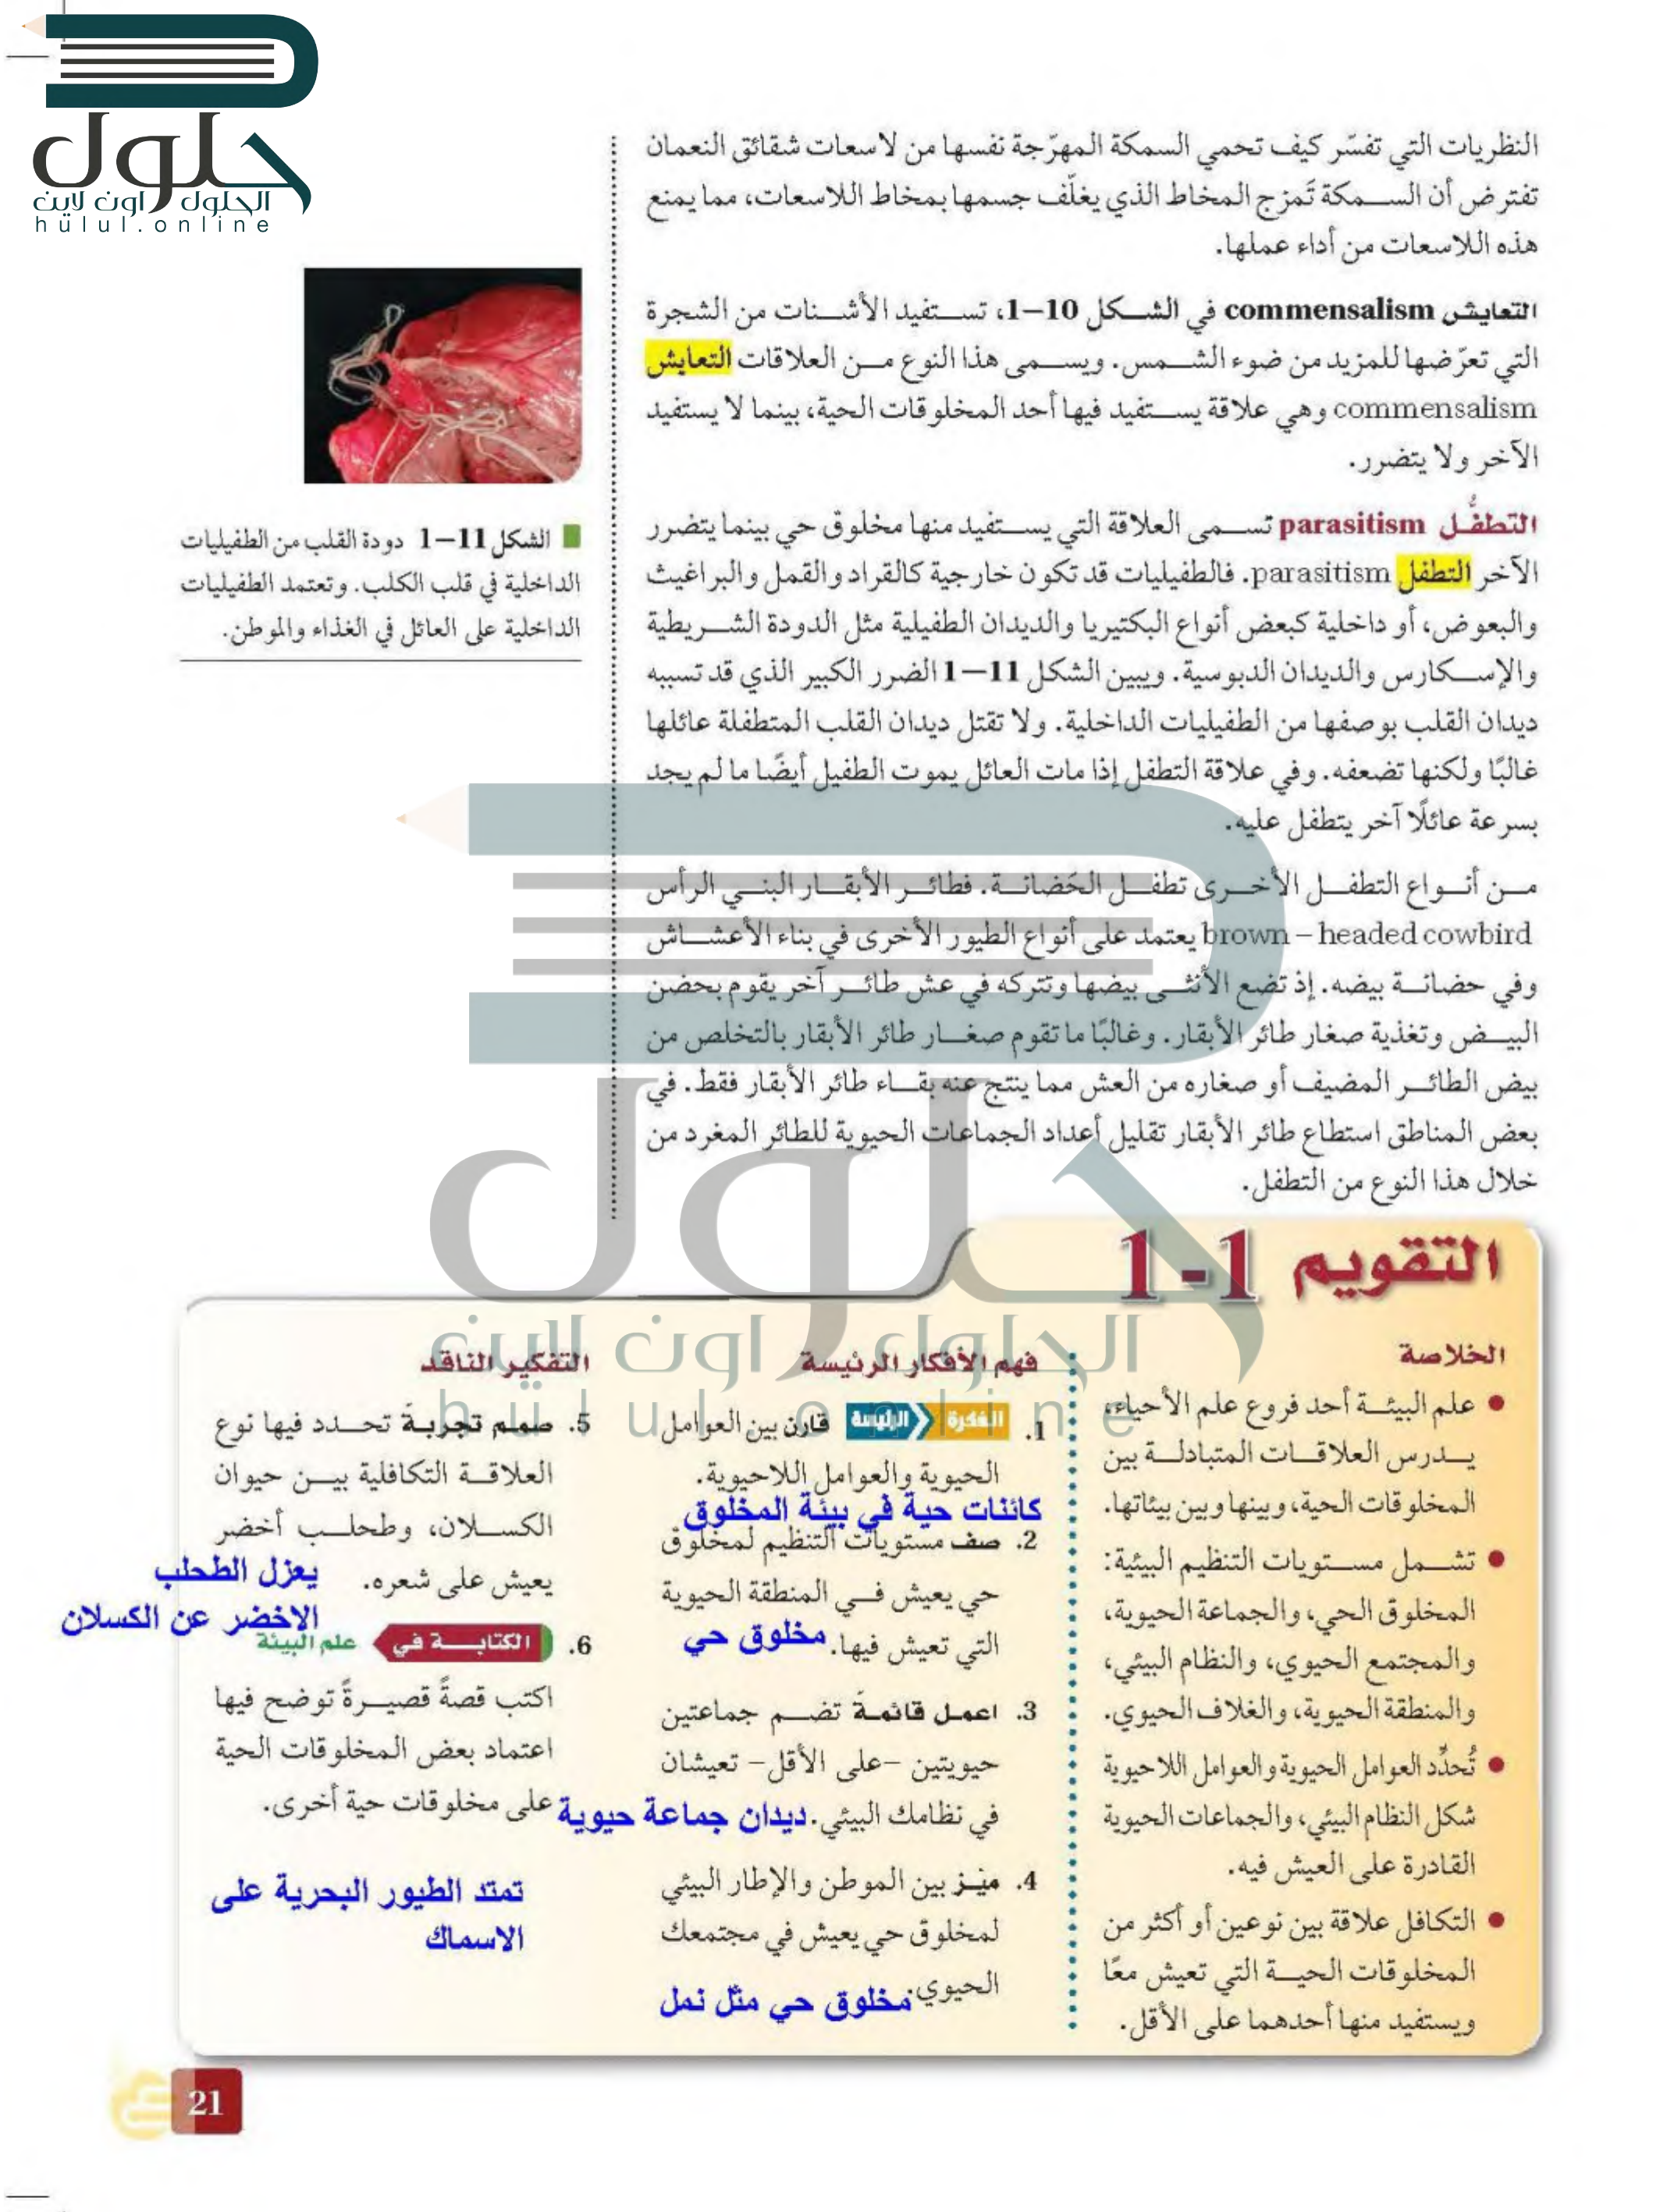 حلول
الحلول اون لاين
hulul.online
النظريات التي تفسّر كيف تحمي السمكة المهرّجة نفسها من لاسعات شقائق النعمان
تفترض أن السمكة تَمزج المخاط الذي يغلّف جسمها بمخاط اللاسعات، مما يمنع
هذه اللاسعات من أداء عملها.
التعايش commensalism في الشكل 10–1، تستفيد الأشنات من الشجرة
التي تعرّضها للمزيد من ضوء الشمس. ويسمى هذا النوع من العلاقات التعايش
commensalism وهي علاقة يستفيد فيها أحد المخلوقات الحية، بينما لا يستفيد
الآخر ولا يتضرر.
التطفُّل parasitism تسمى العلاقة التي يستفيد منها مخلوق حي بينما يتضرر
الآخر التطفل parasitism. فالطفيليات قد تكون خارجية كالقراد والقمل والبراغيث
والبعوض، أو داخلية كبعض أنواع البكتيريا والديدان الطفيلية مثل الدودة الشريطية
والإسكارس والديدان الدبوسية. ويبين الشكل 11–1 الضرر الكبير الذي قد تسببه
ديدان القلب بوصفها من الطفيليات الداخلية. ولا تقتل ديدان القلب المتطفلة عائلها
غالبًا ولكنها تضعفه. وفي علاقة التطفل إذا مات العائل يموت الطفيل أيضًا ما لم يجد
بسرعة عائلًا آخر يتطفل عليه.
من أنواع التطفل الأخرى تطفل الحَضانة. فطائر الأبقار البني الرأس
brown – headed cowbird يعتمد على أنواع الطيور الأخرى في بناء الأعشاش
وفي حضانة بيضه. إذ تضع الأنثى بيضها وتتركه في عش طائر آخر يقوم بحضن
البيض وتغذية صغار طائر الأبقار. وغالبًا ما تقوم صغار طائر الأبقار بالتخلص من
بيض الطائر المضيف أو صغاره من العش مما ينتج عنه بقاء طائر الأبقار فقط. في
بعض المناطق استطاع طائر الأبقار تقليل أعداد الجماعات الحيوية للطائر المغرد من
خلال هذا النوع من التطفل.
الشكل 11–1 دودة القلب من الطفيليات
الداخلية في قلب الكلب. وتعتمد الطفيليات
الداخلية على العائل في الغذاء والموطن.
حلول
الحلول اون لاين
hulul.online
التقويم 1-1
الخلاصة
علم البيئة أحد فروع علم الأحياء،
يدرس العلاقات المتبادلة بين
المخلوقات الحية، وبينها وبين بيئاتها.
تشمل مستويات التنظيم البيئية:
المخلوق الحي، والجماعة الحيوية،
والمجتمع الحيوي، والنظام البيئي،
والمنطقة الحيوية، والغلاف الحيوي.
تُحدِّد العوامل الحيوية والعوامل اللاحيوية
شكل النظام البيئي، والجماعات الحيوية
القادرة على العيش فيه.
التكافل علاقة بين نوعين أو أكثر من
المخلوقات الحية التي تعيش معًا
ويستفيد منها أحدهما على الأقل.
فهم الأفكار الرئيسة
1. الفكرة الرئيسة قارن بين العوامل
الحيوية والعوامل اللاحيوية.
كائنات حية في بيئة المخلوق
2. صف مستويات التنظيم لمخلوق
حي يعيش في المنطقة الحيوية
التي تعيش فيها. مخلوق حي
3. اعمل قائمة تضم جماعتين
حيويتين –على الأقل– تعيشان
في نظامك البيئي. ديدان جماعة حيوية
4. ميّز بين الموطن والإطار البيئي
لمخلوق حي يعيش في مجتمعك
الحيوي. مخلوق حي مثل نمل
التفكير الناقد
5. صمم تجربة تحدد فيها نوع
العلاقة التكافلية بين حيوان
الكسلان، وطحلب أخضر
يعيش على شعره. يعزل الطحلب
الاخضر عن الكسلان
6. الكتابة في علم البيئة
اكتب قصةً قصيرةً توضح فيها
اعتماد بعض المخلوقات الحية
على مخلوقات حية أخرى.
تمتد الطيور البحرية على
الاسماك
21